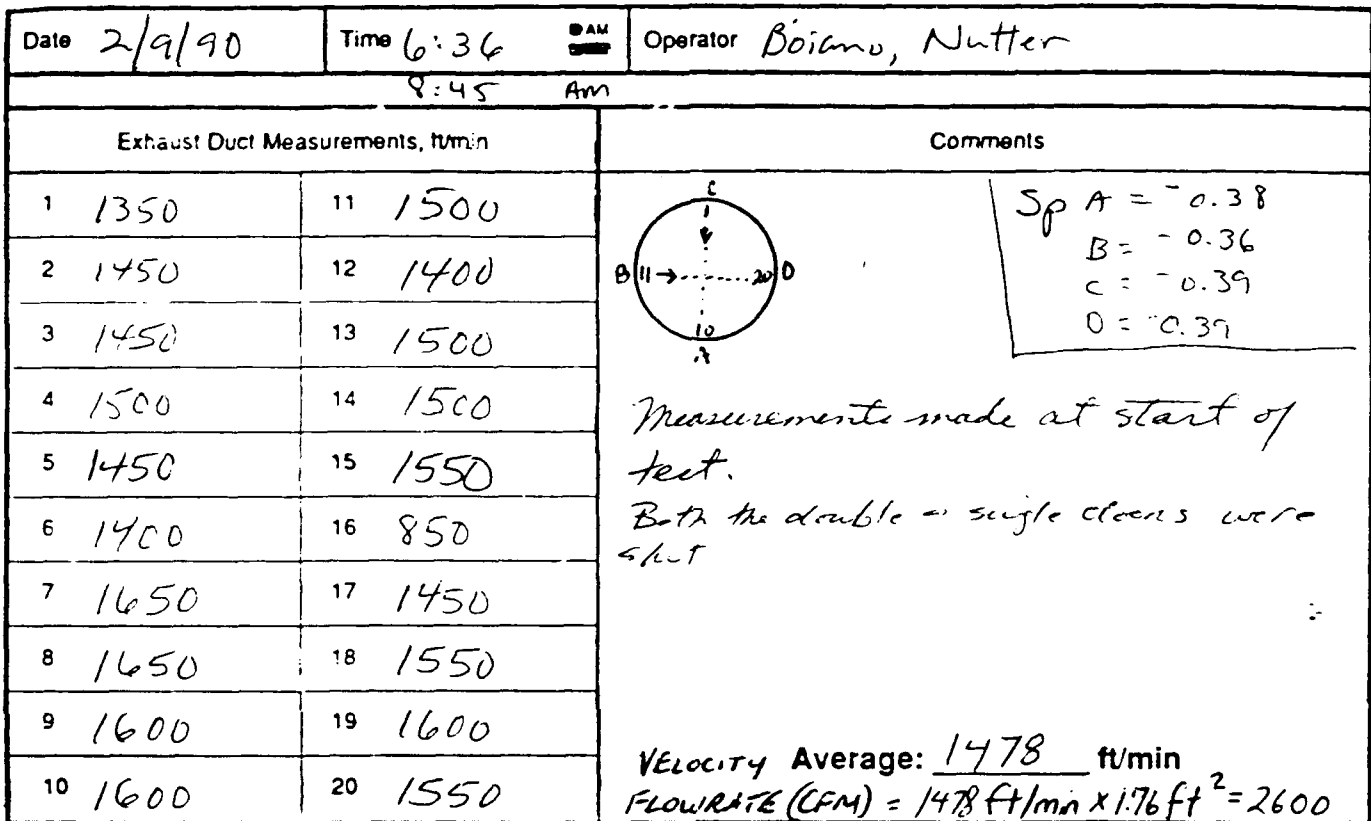 Date 2/9/90 Time 6:36 AM Operator Boiano, Nutter
8:45 AM
Exhaust Duct Measurements, ft/min Comments
1 1350 11 1500
2 1450 12 1400
3 1450 13 1500
4 1500 14 1500
5 1450 15 1550
6 1400 16 850
7 1650 17 1450
8 1650 18 1550
9 1600 19 1600
10 1600 20 1550
C
1
B 11 20 D
10
A
Sp A = -0.38
B = -0.36
C = -0.39
D = -0.39
Measurements made at start of
test.
Both the double single doors were
shut
VELOCITY Average: 1478 ft/min
FLOWRATE (CFM) = 1478 ft/min x 1.76 ft² = 2600